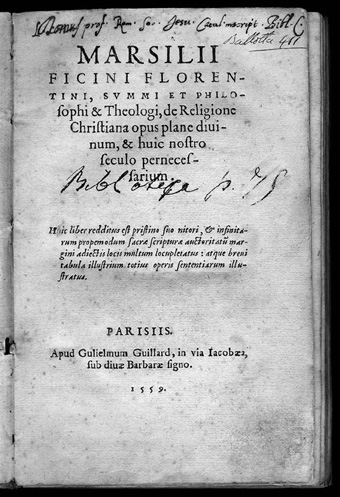 Domus prof. Rom. Soc. Jesu. Catal. inscript. Bibl. C
Ballotta
MARSILII
FICINI FLOREN-
TINI, SVMMI ET PHILO-
sophi & Theologi, de Religione
Christiana opus plane diui-
num, & huic nostro
seculo perneces-
sarium.
p.
Huic liber redditus est pristino suo nitori, & infinita-
rum propemodum sacræ scripturæ auctoritatũ mar-
gini adiectis locis multum locupletatus : atque breui
tabula illustrium totius operis sententiarum illu-
stratus.
PARISIIS.
Apud Gulielmum Guillard, in via Iacobæa,
sub diuæ Barbaræ signo.
1559.